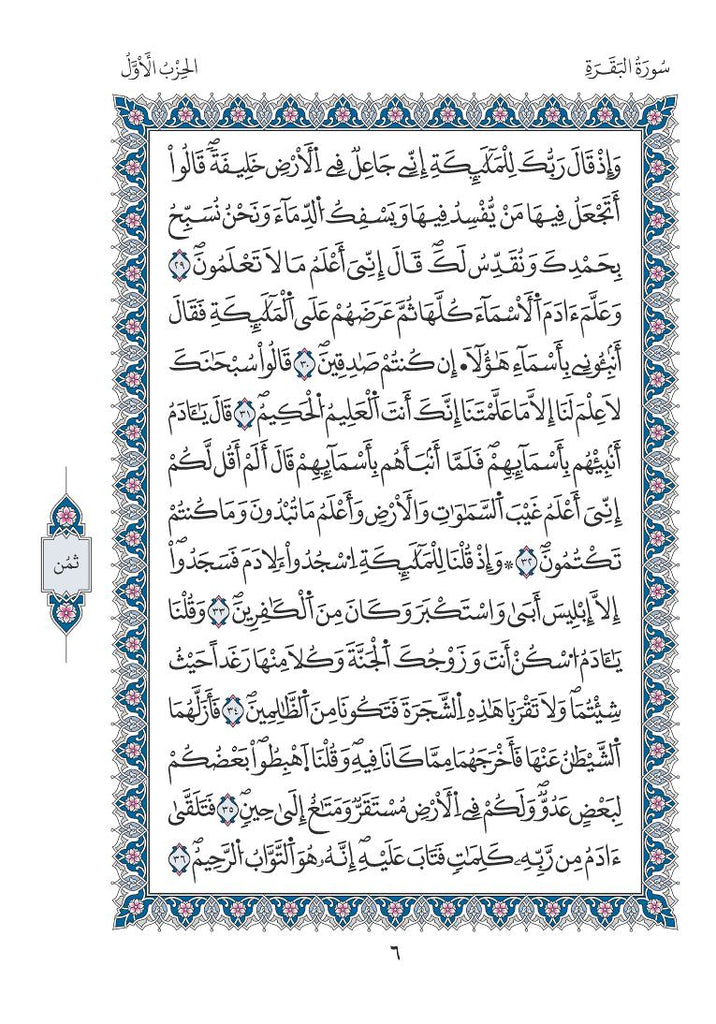 سُورَةُ البَقَرَةِ
الحِزْبُ الْأَوَّلُ
وَإِذْ قَالَ رَبُّكَ لِلْمَلَٰٓئِكَةِ إِنِّے جَاعِلٞ فِے اِ۬لَارْضِ خَلِيفَةٗۖ قَالُوٓاْ
أَتَجْعَلُ فِيهَا مَنْ يُّفْسِدُ فِيهَا وَيَسْفِكُ اُ۬لدِّمَآءَ وَنَحْنُ نُسَبِّحُ
بِحَمْدِكَ وَنُقَدِّسُ لَكَۖ قَالَ إِنِّيَ أَعْلَمُ مَا لَا تَعْلَمُونَۖ ٢٩
وَعَلَّمَ ءَادَمَ اَ۬لَاسْمَآءَ كُلَّهَا ثُمَّ عَرَضَهُمْ عَلَي اَ۬لْمَلَٰٓئِكَةِ فَقَالَ
أَنۢبِـُٔونِے بِأَسْمَآءِ هَٰٓؤُلَآءِ ان كُنتُمْ صَٰدِقِينَۖ ٣٠ قَالُواْ سُبْحَٰنَكَ
لَا عِلْمَ لَنَآ إِلَّا مَا عَلَّمْتَنَآ إِنَّكَ أَنتَ اَ۬لْعَلِيمُ اُ۬لْحَكِيمُۖ ٣١ قَالَ يَٰٓـَٔادَمُ
أَنۢبِئْهُم بِأَسْمَآئِهِمْۖ فَلَمَّآ أَنۢبَأَهُم بِأَسْمَآئِهِمْ قَالَ أَلَمَ اَقُل لَّكُمُۥٓ
إِنِّيَ أَعْلَمُ غَيْبَ اَ۬لسَّمَٰوَٰتِ وَالَارْضِ وَأَعْلَمُ مَا تُبْدُونَ وَمَا كُنتُمْ
تَكْتُمُونَۖ ٣٢ ۞ وَإِذْ قُلْنَا لِلْمَلَٰٓئِكَةِ اِ۟سْجُدُواْ لِأٓدَمَ فَسَجَدُوٓاْ
إِلَّآ إِبْلِيسَ أَب۪يٰ وَاسْتَكْبَرَ وَكَانَ مِنَ اَ۬لْكٰ۪فِرِينَۖ ٣٣ وَقُلْنَا
يَٰٓـَٔادَمُ اُ۟سْكُنَ اَنتَ وَزَوْجُكَ اَ۬لْجَنَّةَ وَكُلَا مِنْهَا رَغَداً حَيْثُ
شِئْتُمَاۖ وَلَا تَقْرَبَا هَٰذِهِ اِ۬لشَّجَرَةَ فَتَكُونَا مِنَ اَ۬لظَّٰلِمِينَۖ ٣٤ فَأَزَلَّهُمَا
اَ۬لشَّيْطَٰنُ عَنْهَا فَأَخْرَجَهُمَا مِمَّا كَانَا فِيهِۖ وَقُلْنَا اَ۪هْبِطُواْ بَعْضُكُمْ
لِبَعْضٍ عَدُوّٞۖ وَلَكُمْ فِے اِ۬لَارْضِ مُسْتَقَرّٞ وَمَتَٰعٌ اِلَيٰ حِينٖۖ ٣٥ فَتَلَقّ۪يٰٓ
ءَادَمُ مِن رَّبِّهِۦ كَلِمَٰتٖ فَتَابَ عَلَيْهِۖ إِنَّهُۥ هُوَ اَ۬لتَّوَّابُ اُ۬لرَّحِيمُۖ ٣٦
ثُمُن
٦